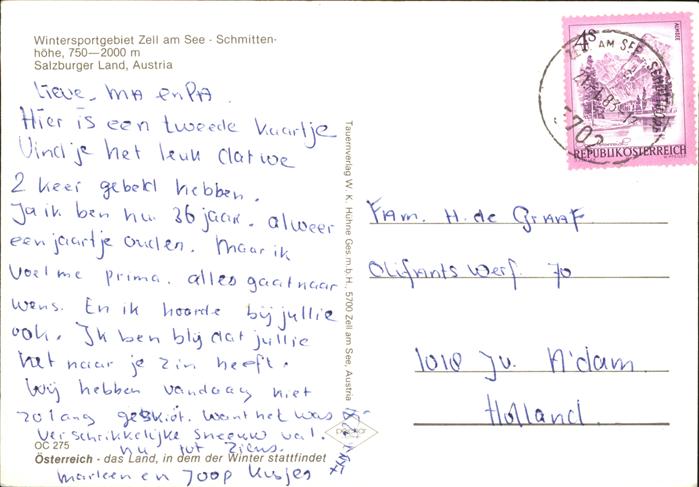 Wintersportgebiet Zell am See - Schmitten-
höhe, 750—2000 m
Salzburger Land, Austria
Lieve, MA en PA.
Hier is een tweede kaartje
Vind je het leuk dat we
2 keer gebeld hebben.
Ja ik ben nu 36 jaar. alweer
een jaartje ouder. Maar ik
voel me prima. alles gaat naar
wens. En ik hoorde bij jullie
ook. Ik ben blij dat jullie
het naar je zin heeft.
Wij hebben vandaag niet
zo lang geskiet. want het was
verschrikkelijke sneeuw val.
nu tot ziens.
Marleen en Joop Kusjes
OC 275
Österreich - das Land, in dem der Winter stattfindet
Tauernverlag W. K. Hühne Ges.m.b.H., 5700 Zell am See, Austria
4 S
ALMSEE
REPUBLIK ÖSTERREICH
ZELL AM SEE
5702
FAM. H. de GRAAF
Olifants werf. 70
1018 JV. A'dam
Holland.